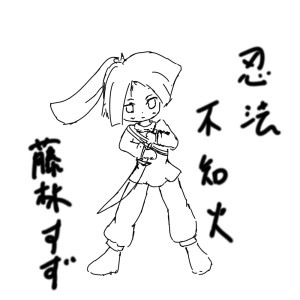 忍法
不知火
藤林すず